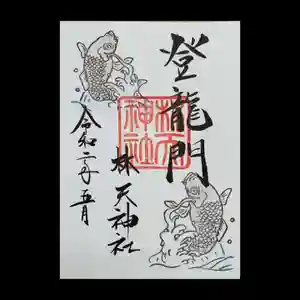 登龍門
林天神社
林天
神社
令和二年五月